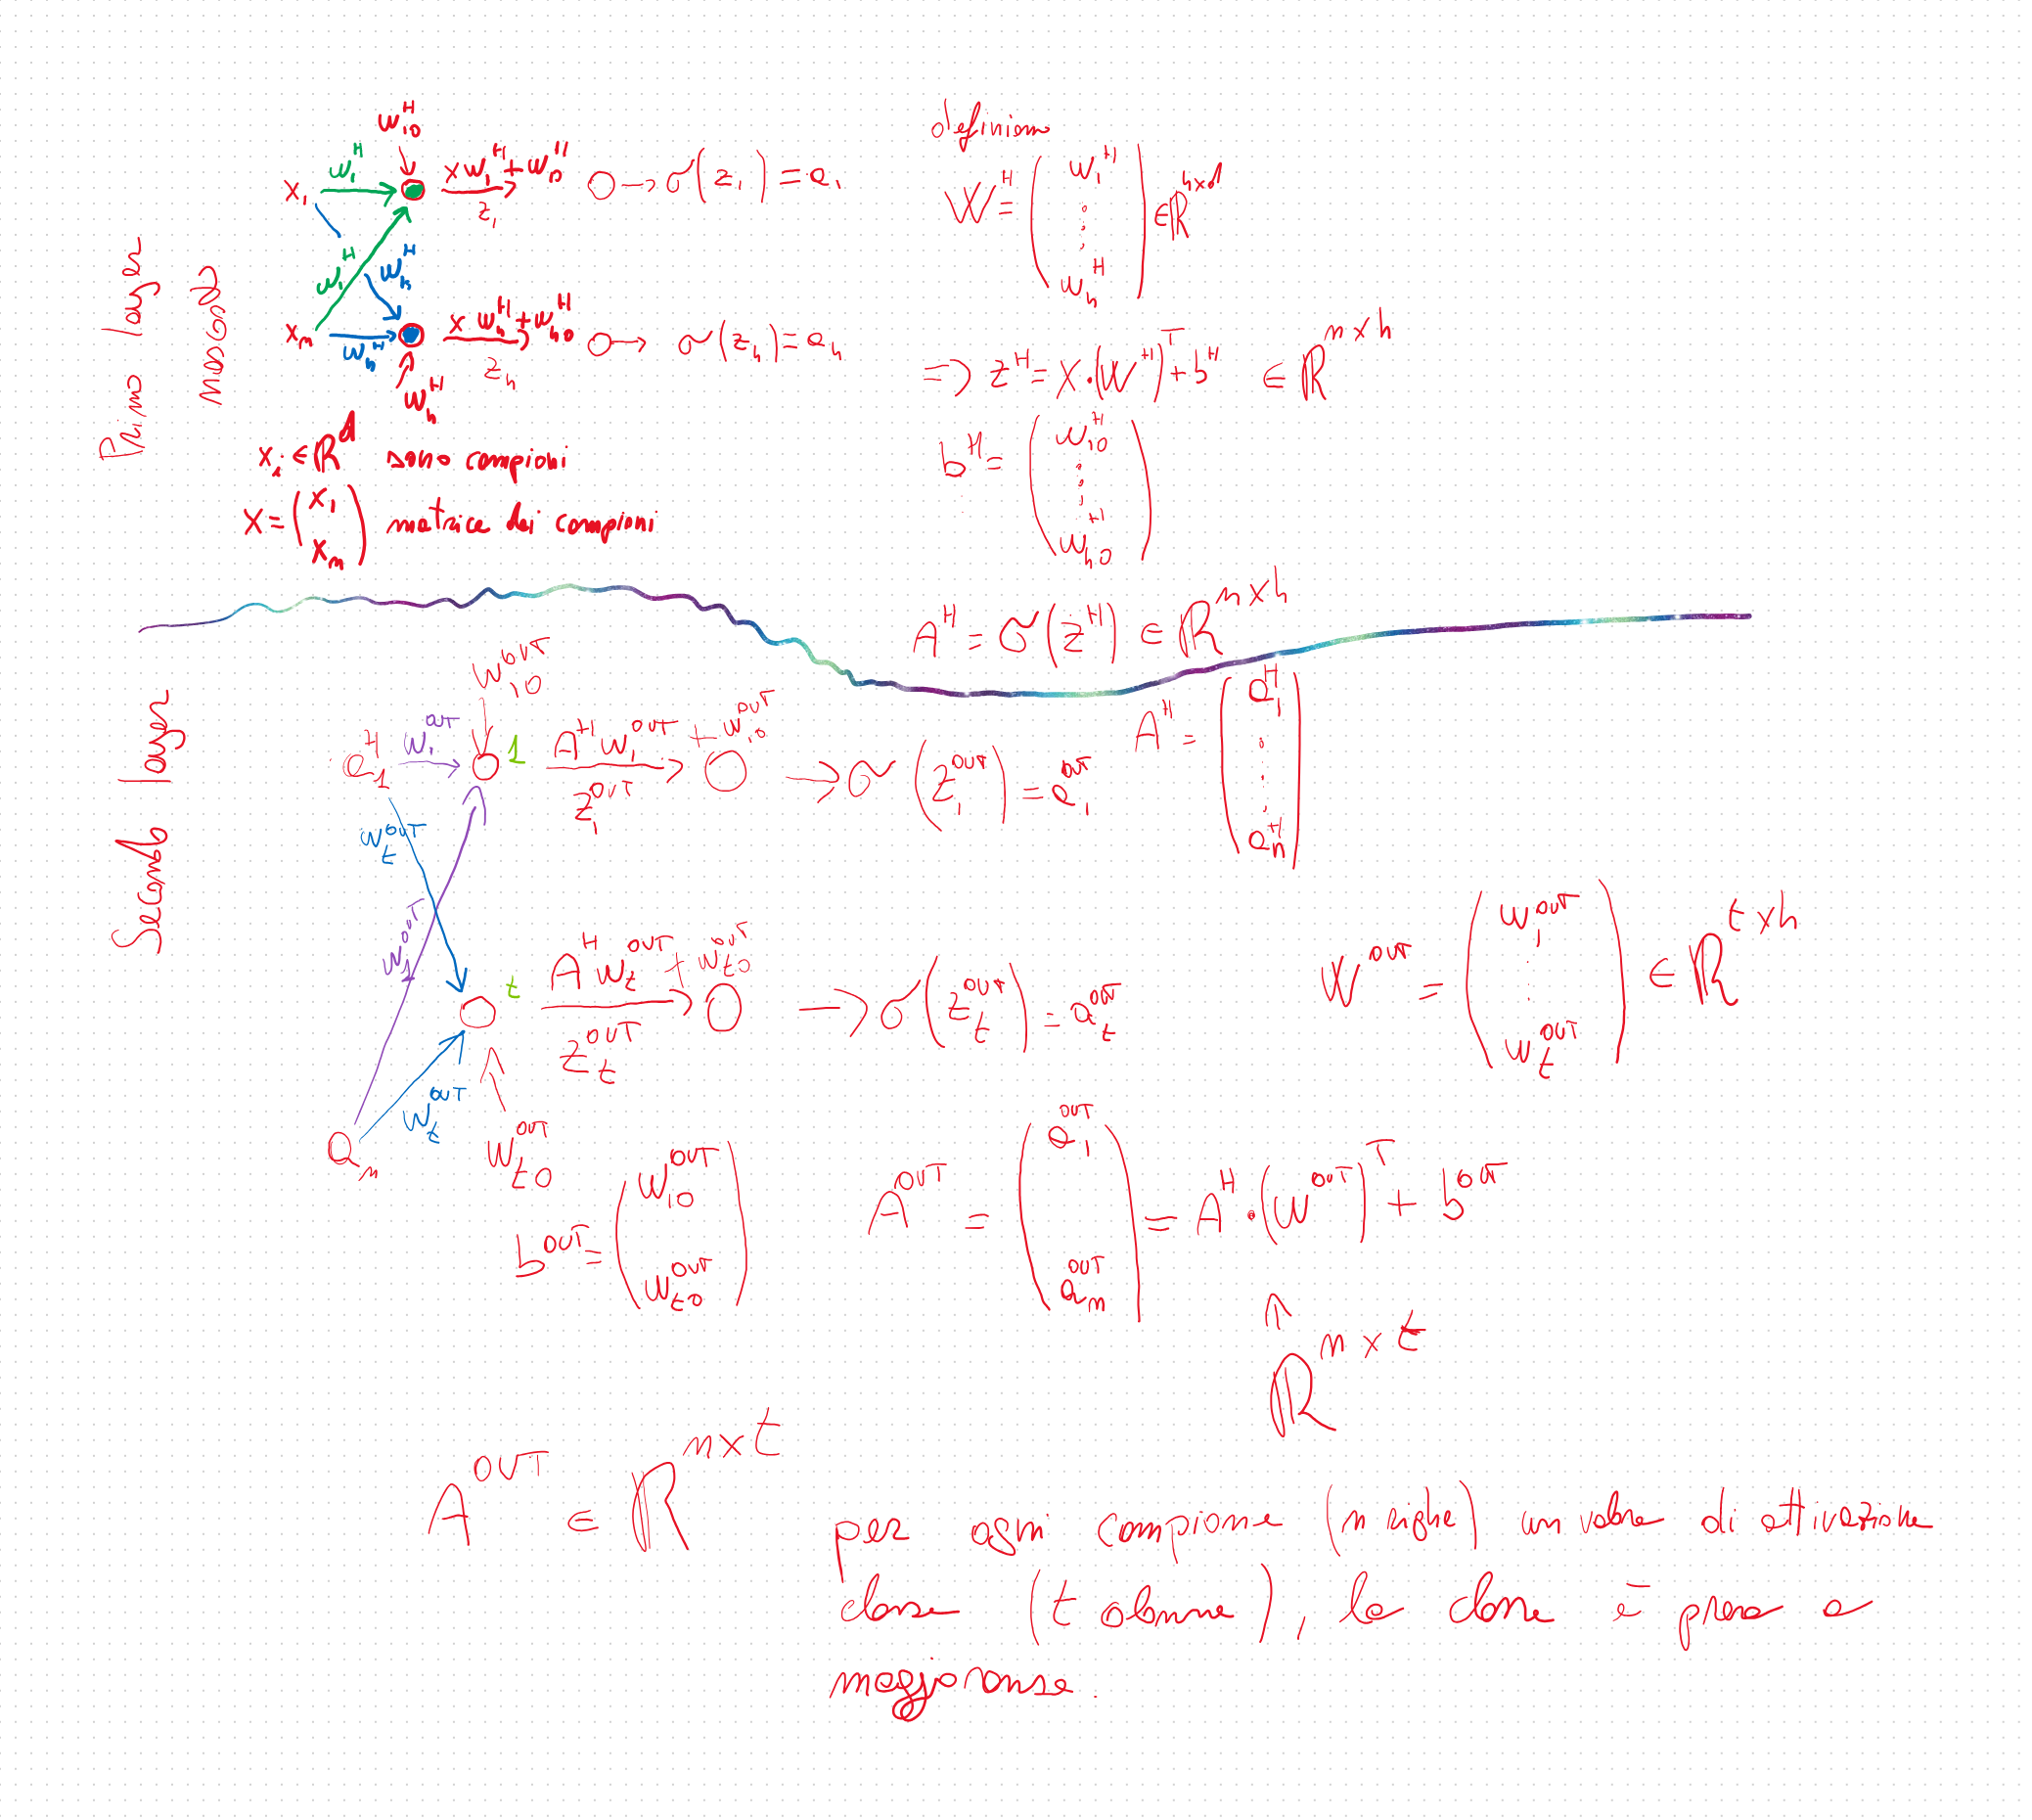 Primo layer
nascosto
w₁₀ᴴ
x₁ w₁ᴴ x w₁ᴴ + w₁₀ᴴ → σ(z₁) = a₁
z₁
w₁ᴴ wₕᴴ
xₙ wₕᴴ x wₕᴴ + wₕ₀ᴴ → σ(zₕ) = aₕ
zₕ
wₕᴴ
xᵢ ∈ ℝᵈ sono campioni
X = (x₁ xₙ) matrice dei campioni
definiamo
Wᴴ = (w₁ᴴ ⋮ wₕᴴ) ∈ ℝʰˣᵈ
=> zᴴ = X·(Wᴴ)ᵀ + bᴴ ∈ ℝⁿˣʰ
bᴴ = (w₁₀ᴴ ⋮ wₕ₀ᴴ)
Aᴴ = σ(zᴴ) ∈ ℝⁿˣʰ
Aᴴ = (a₁ᴴ ⋮ aₙᴴ)
Secondo layer
w₁₀ᴼᵁᵀ
a₁ᴴ w₁ᴼᵁᵀ 1 Aᴴ w₁ᴼᵁᵀ + w₁₀ᴼᵁᵀ → σ(z₁ᴼᵁᵀ) = a₁ᴼᵁᵀ
z₁ᴼᵁᵀ
wₜᴼᵁᵀ
w₁ᴼᵁᵀ
t Aᴴ wₜᴼᵁᵀ + wₜ₀ᴼᵁᵀ → σ(zₜᴼᵁᵀ) = aₜᴼᵁᵀ
zₜᴼᵁᵀ
Wᴼᵁᵀ = (w₁ᴼᵁᵀ ⋮ wₜᴼᵁᵀ) ∈ ℝᵗˣʰ
aₙ wₜᴼᵁᵀ
wₜ₀ᴼᵁᵀ
bᴼᵁᵀ = (w₁₀ᴼᵁᵀ wₜ₀ᴼᵁᵀ)
Aᴼᵁᵀ = (a₁ᴼᵁᵀ aₙᴼᵁᵀ) = Aᴴ·(Wᴼᵁᵀ)ᵀ + bᴼᵁᵀ
↑
ℝⁿˣᵗ
Aᴼᵁᵀ ∈ ℝⁿˣᵗ
per ogni campione (n righe) un valore di attivazione
classe (t colonne), la classe è presa a
maggioranza.